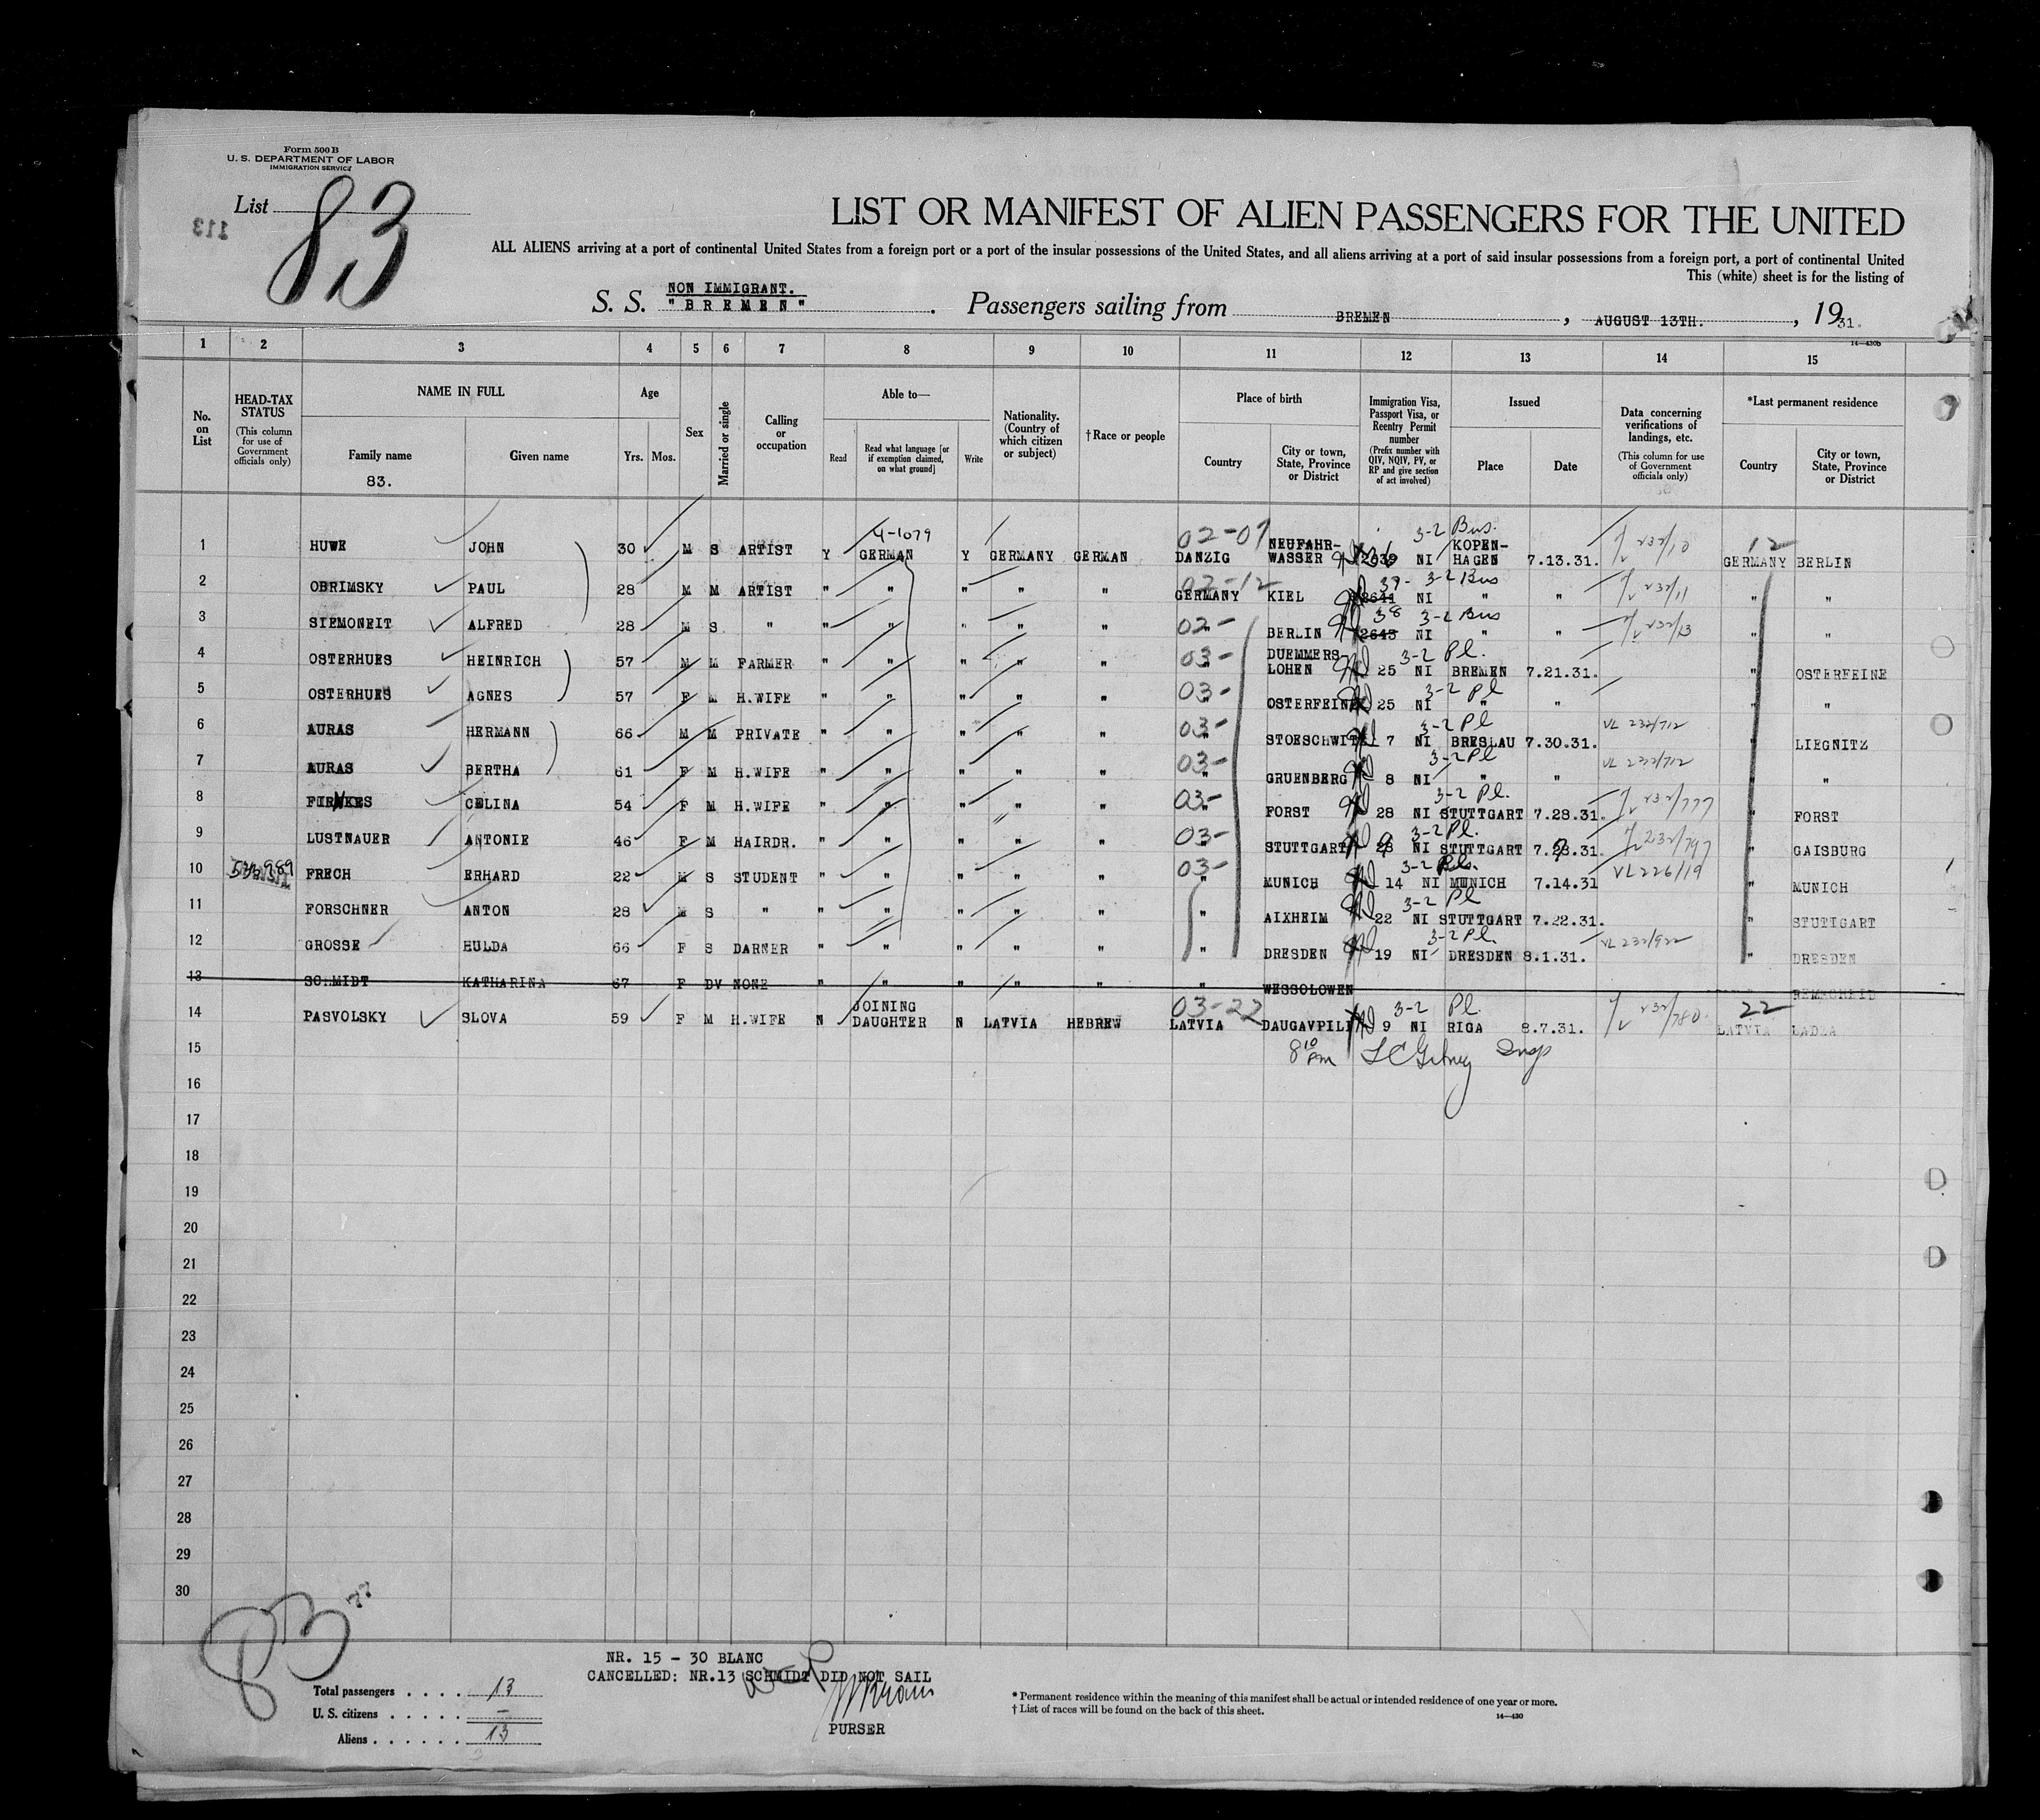 Form 500 B
U. S. DEPARTMENT OF LABOR
IMMIGRATION SERVICE
List 83
113
LIST OR MANIFEST OF ALIEN PASSENGERS FOR THE UNITED
ALL ALIENS arriving at a port of continental United States from a foreign port or a port of the insular possessions of the United States, and all aliens arriving at a port of said insular possessions from a foreign port, a port of continental United
This (white) sheet is for the listing of
NON IMMIGRANT.
S. S. "BREMEN". Passengers sailing from BREMEN, AUGUST 13TH., 1931.
14—430b
1 2 3 4 5 6 7 8 9 10 11 12 13 14 15
No. on List
HEAD-TAX STATUS (This column for use of Government officials only)
NAME IN FULL Family name Given name
83.
Age Yrs. Mos.
Sex
Married or single
Calling or occupation
Able to— Read Read what language [or if exemption claimed, on what ground] Write
Nationality. (Country of which citizen or subject)
†Race or people
Place of birth Country City or town, State, Province or District
Immigration Visa, Passport Visa, or Reentry Permit number (Prefix number with QIV, NQIV, PV, or RP and give section of act involved)
Issued Place Date
Data concerning verifications of landings, etc. (This column for use of Government officials only)
*Last permanent residence Country City or town, State, Province or District
4-1079 02-07 3-2 Bus. 12
1 HUWE JOHN 30 M S ARTIST Y GERMAN Y GERMANY GERMAN DANZIG NEUFAHR-WASSER NI KOPEN-HAGEN 7.13.31. 232/10 GERMANY BERLIN
02-12 37- 3-2 Bus
2 OBRIMSKY PAUL 28 M M ARTIST " " " " " GERMANY KIEL 2641 NI " " 232/11 " "
02- 38 3-2 Bus
3 SIEMONEIT ALFRED 28 M S " " " " " " " BERLIN 2643 NI " " 232/13 " "
03- 3-2 Pl.
4 OSTERHUES HEINRICH 57 M M FARMER " " " " " " DUEMMERS-LOHEN 25 NI BREMEN 7.21.31. " OSTERFEINE
03- 3-2 Pl
5 OSTERHUES AGNES 57 F M H.WIFE " " " " " " OSTERFEINE 25 NI " " " "
03- 3-2 Pl
6 AURAS HERMANN 66 M M PRIVATE " " " " " " STOESCHWITZ 7 NI BRESLAU 7.30.31. VL 232/712 " LIEGNITZ
03- 3-2 Pl
7 AURAS BERTHA 61 F M H.WIFE " " " " " " GRUENBERG 8 NI " " VL 232/712 " "
03- 3-2 Pl.
8 FIRNKES CELINA 54 F M H.WIFE " " " " " " FORST 28 NI STUTTGART 7.28.31. 232/777 " FORST
03- 3-2 Pl.
9 LUSTNAUER ANTONIE 46 F M HAIRDR. " " " " " " STUTTGART NI STUTTGART 232/797 " GAISBURG
03-
10 FRECH ERHARD 22 M S STUDENT " " " " " " MUNICH 14 NI MUNICH 7.14.31 VL 226/19 " MUNICH
3-2 Pl
11 FORSCHNER ANTON 28 M S " " " " " " " AIXHEIM 22 NI STUTTGART 7.22.31. " STUTTGART
3-2 Pl.
12 GROSSE HULDA 66 F S DARNER " " " " " " DRESDEN 19 NI DRESDEN 8.1.31. VL 232/922 " DRESDEN
13 SCHMIDT KATHARINA 67 F DV NONE " " " " " " WESSOLOWEN REMSCHEID
03-22 3-2 Pl. 22
14 PASVOLSKY SLOVA 59 F M H.WIFE N JOINING DAUGHTER N LATVIA HEBREW LATVIA DAUGAVPILI 9 NI RIGA 8.7.31. 232/780 LATVIA LADZA
15 8 10 PM Insp
16
17
18
19
20
21
22
23
24
25
26
27
28
29
30
83
NR. 15 - 30 BLANC
CANCELLED: NR.13 SCHMIDT DID NOT SAIL
PURSER
Total passengers . . . . 13
U. S. citizens . . . . . —
Aliens . . . . . . 13
* Permanent residence within the meaning of this manifest shall be actual or intended residence of one year or more.
† List of races will be found on the back of this sheet.
14—430